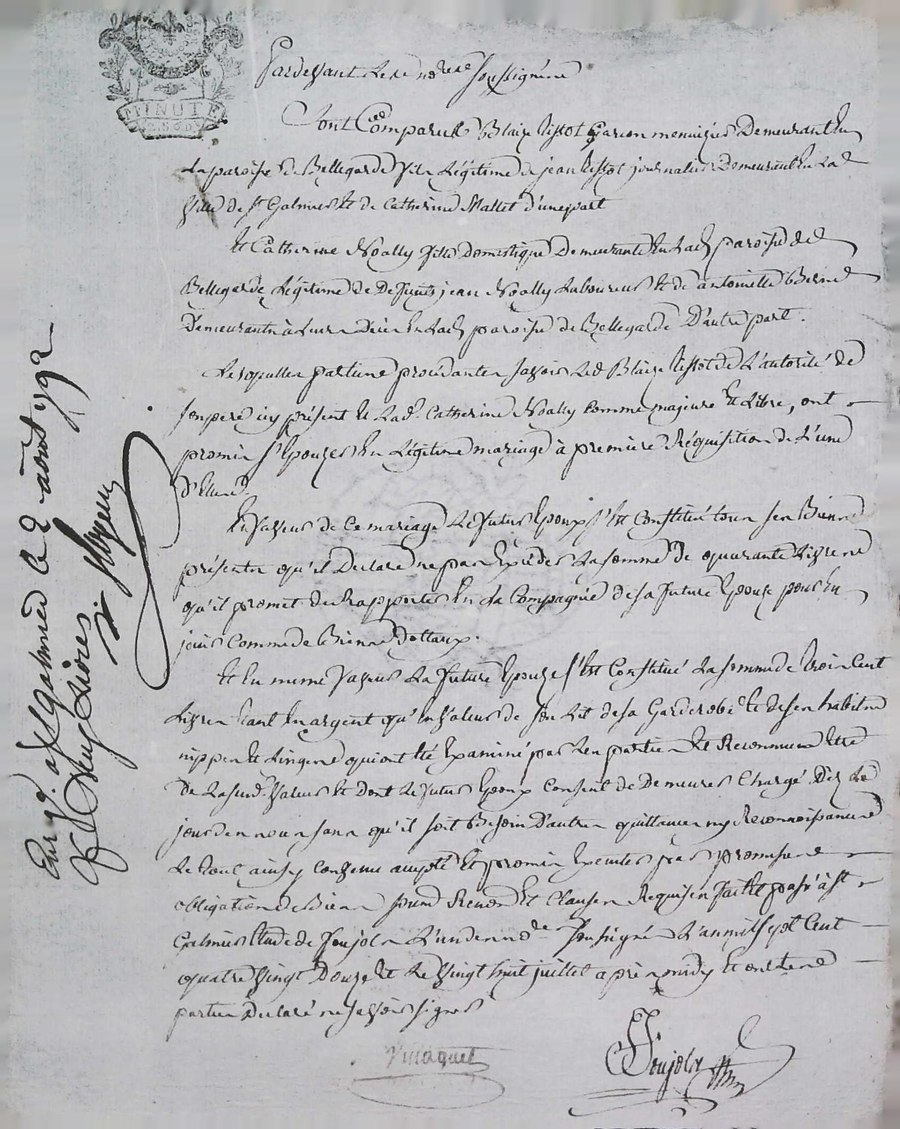 MINUTE
Pardevant les nores soussignés
Sont Comparus Blaize Tissot Garcon menuizier Demeurant En
La paroisse de Bellegarde fils Légitime de jean Tissot journalier Demeurant En Lad
Ville de St Galmier Et de Catherine Mallet d'une part
Et Catherine Noally fille Domestique Demeurante En Lad paroisse de
Bellegarde Légitime de Defunts jean Noally Laboureur Et de antoinette
Demeurants à Leur Décès En Lad paroisse de Bellegarde D'autre part.
Lesquelles parties procédantes savoir Led Blaize Tissot de L'autorité de
son pere icy présent Et Lad. Catherine Noally comme majeure Et Libre, ont
promis S'Epouzer En Légitime mariage à première Réquisition de L'une
d'Elles
En faveur de Ce mariage Le futur Epoux S'Est Constitué tous ses Biens
présents qu'il Déclare ne pas Excéder La somme de quarante Livres
qu'il promet de Rapporter En La Compagnie de sa future Epouze pour En
jouir Comme de Biens Dottaux.
Et En meme faveur La future Epouze S'Est Constitué La somme de trois Cent
Livres tant En argent qu'En valeur de Son Lit de sa Garderobe Et de ses habits
nippes Et Linges qui ont Eté Examiné par Les parties Et Reconnus Etre
De Lasusd. valeur Et Dont Le futur Epoux Consent de Demeurer Chargé Dez Le
jour des noces sans qu'il soit Besoin D'autres quittances ny Reconnoissances
Le tout ainsy Convenu accepté Et promis Executer par promesses
obligation de Biens Et Clauses Requises fait Et passé à St
Galmier Etude de Soujols L'un des nores Soussignés L'an mil sept Cent
quatre vingt Douze Et Le vingt huit juillet après midy Et ont Les
parties Declaré ne savoir signer
Soujols
Enrg. a St Galmier le 2 aoust 1792